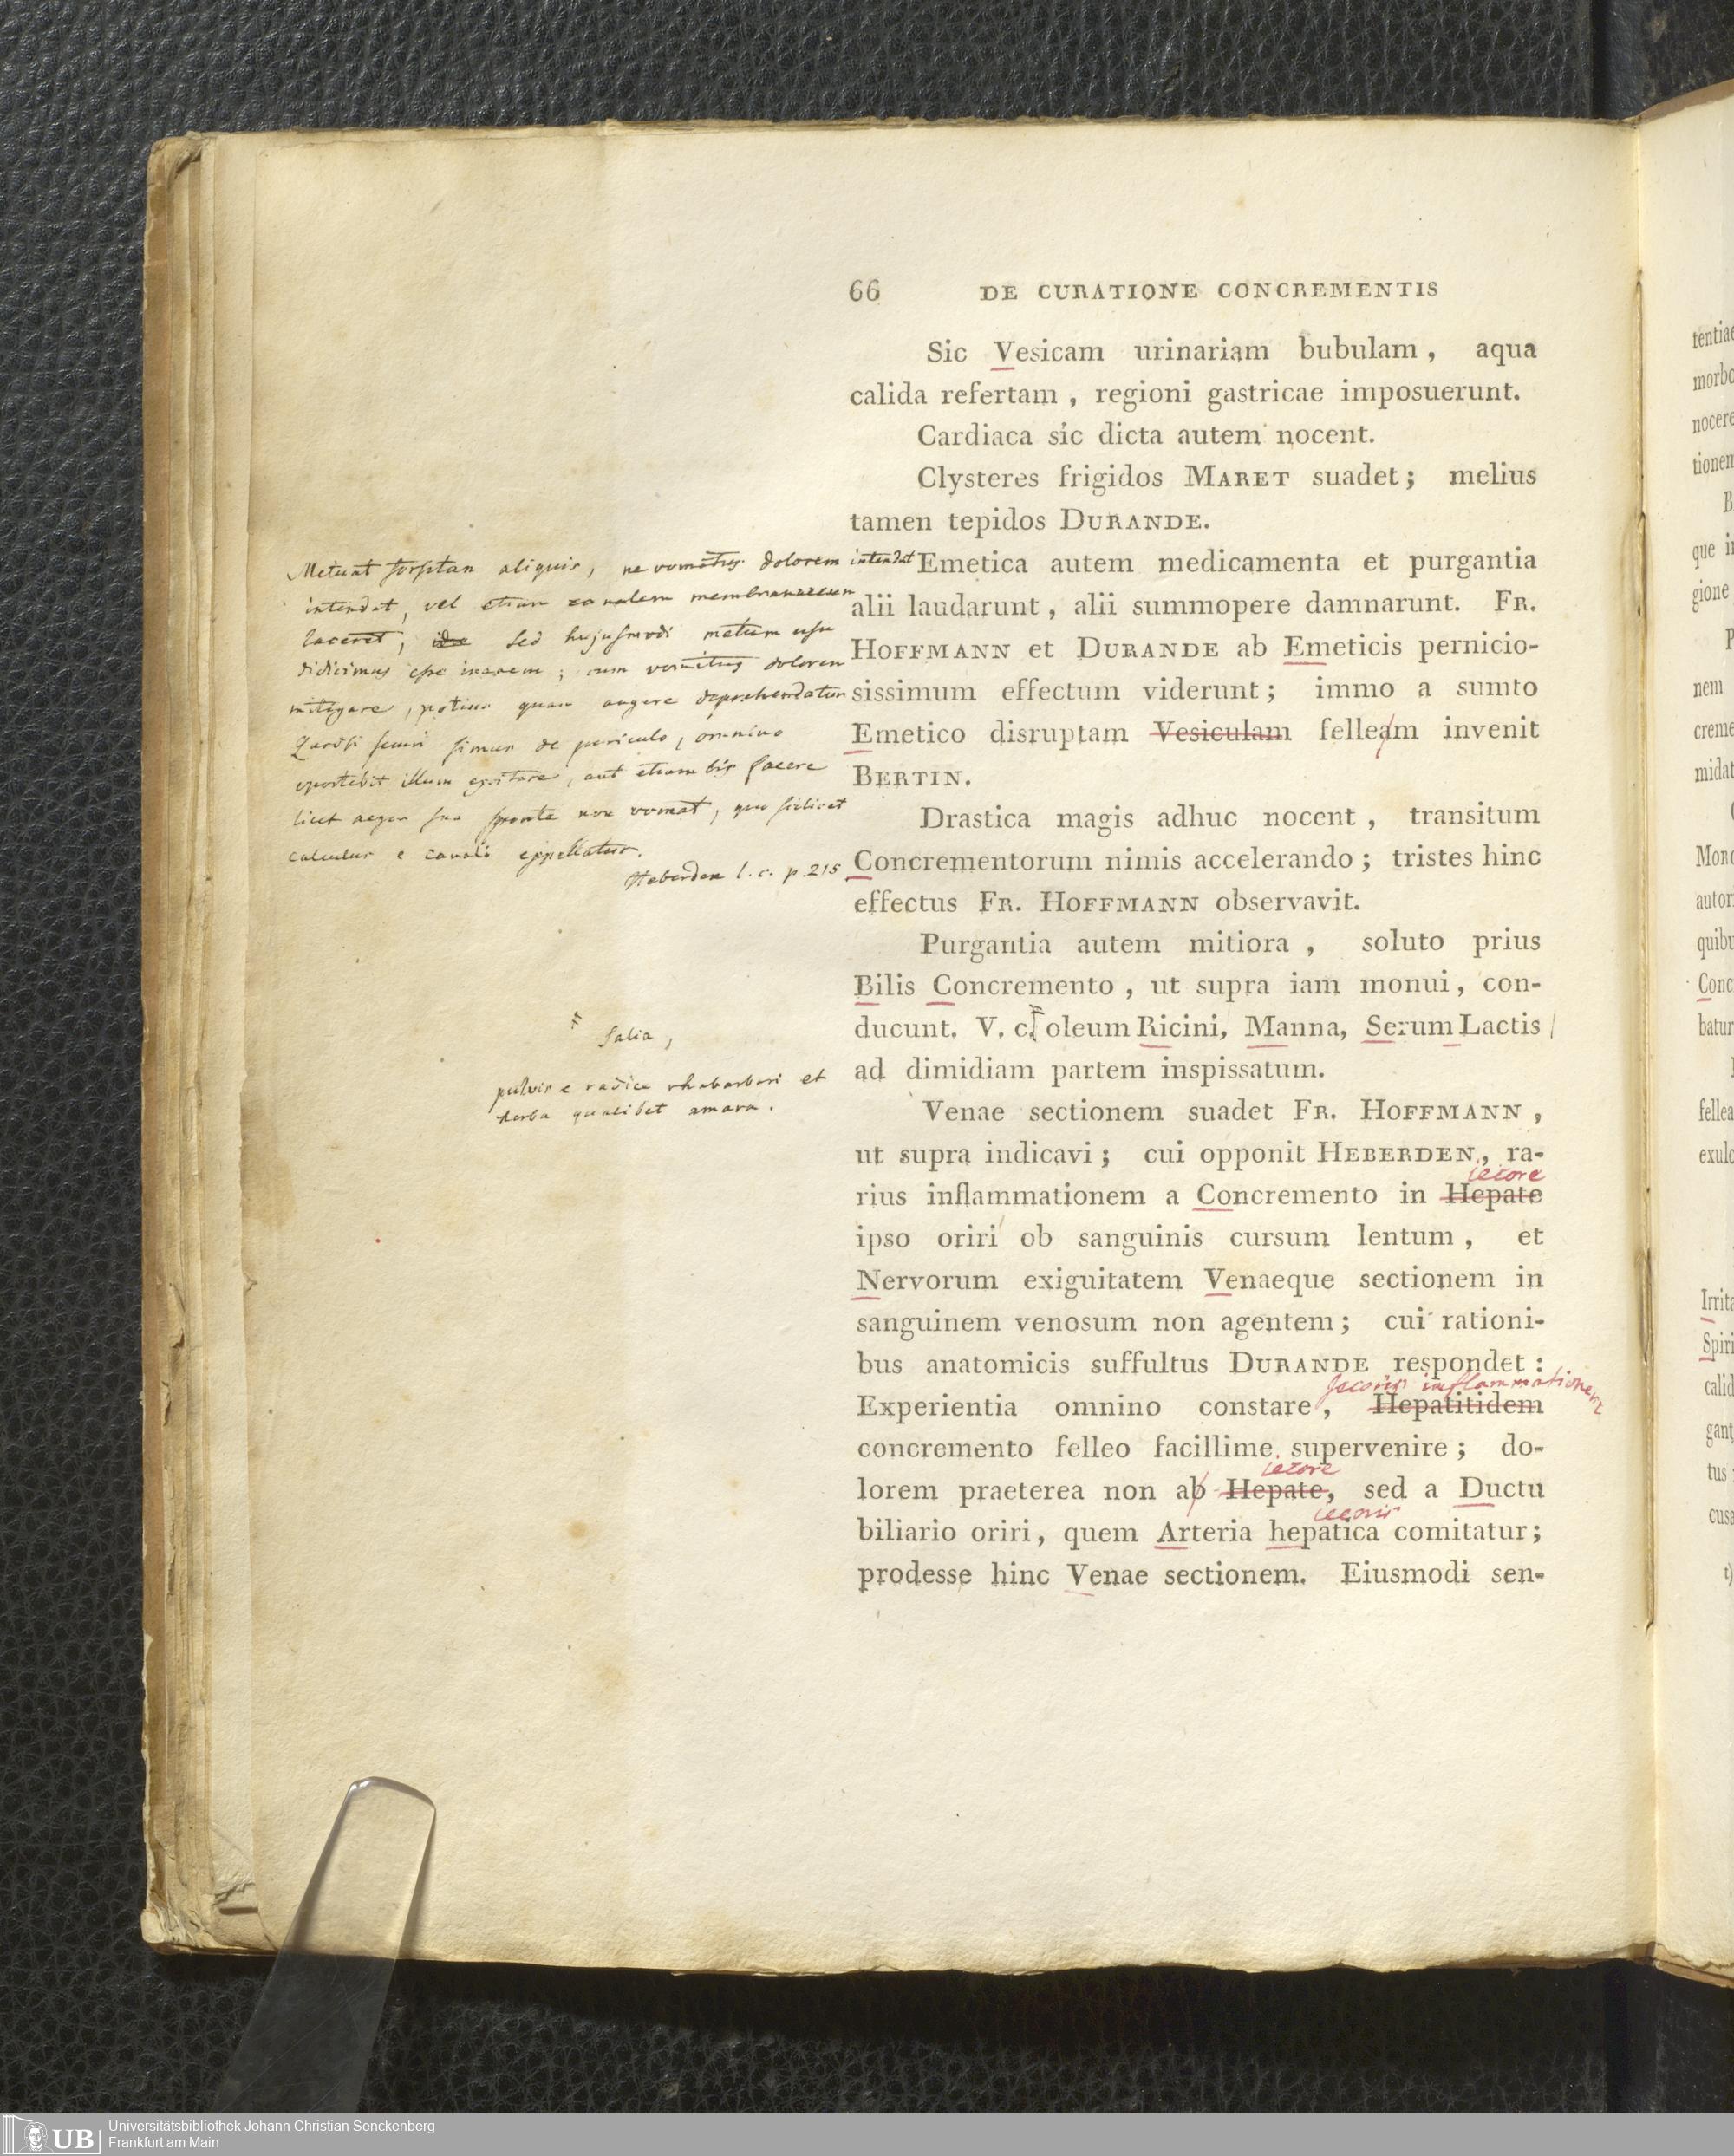 66 DE CURATIONE CONCREMENTIS
Sic Vesicam urinariam bubulam, aqua
calida refertam, regioni gastricae imposuerunt.
Cardiaca sic dicta autem nocent.
Clysteres frigidos MARET suadet; melius
tamen tepidos DURANDE.
Emetica autem medicamenta et purgantia
alii laudarunt, alii summopere damnarunt. FR.
HOFFMANN et DURANDE ab Emeticis pernicio-
sissimum effectum viderunt; immo a sumto
Emetico disruptam Vesiculam felleam invenit
BERTIN.
Drastica magis adhuc nocent, transitum
Concrementorum nimis accelerando; tristes hinc
effectus FR. HOFFMANN observavit.
Purgantia autem mitiora, soluto prius
Bilis Concremento, ut supra iam monui, con-
ducunt. V. c. oleum Ricini, Manna, Serum Lactis
ad dimidiam partem inspissatum.
Venae sectionem suadet FR. HOFFMANN,
ut supra indicavi; cui opponit HEBERDEN, ra-
iecore
rius inflammationem a Concremento in Hepate
ipso oriri ob sanguinis cursum lentum, et
Nervorum exiguitatem Venaeque sectionem in
sanguinem venosum non agentem; cui rationi-
bus anatomicis suffultus DURANDE respondet:
Jecoris inflammationem
Experientia omnino constare, Hepatitidem
concremento felleo facillime supervenire; do-
iecore
lorem praeterea non ab Hepate, sed a Ductu
iecoris
biliario oriri, quem Arteria hepatica comitatur;
prodesse hinc Venae sectionem. Eiusmodi sen-
Metuat forsitan aliquis, ne vomitus dolorem intendat
intendat, vel etiam canalem membranaceum
laceret, sed hujusmodi metum usu
didicimus esse inanem; cum vomitus dolorem
mitigare, potius quam augere deprehendatur
Quodsi securi simus de periculo, omnino
oportebit illum excitare, aut etiam bis facere
licet aeger sua sponte non vomat, quo scilicet
calculus e canali expellatur.
Heberden l. c. p. 215
Salia,
pulvis e radice rhabarbari et
herba quaelibet amara.
Universitätsbibliothek Johann Christian Senckenberg
UB Frankfurt am Main